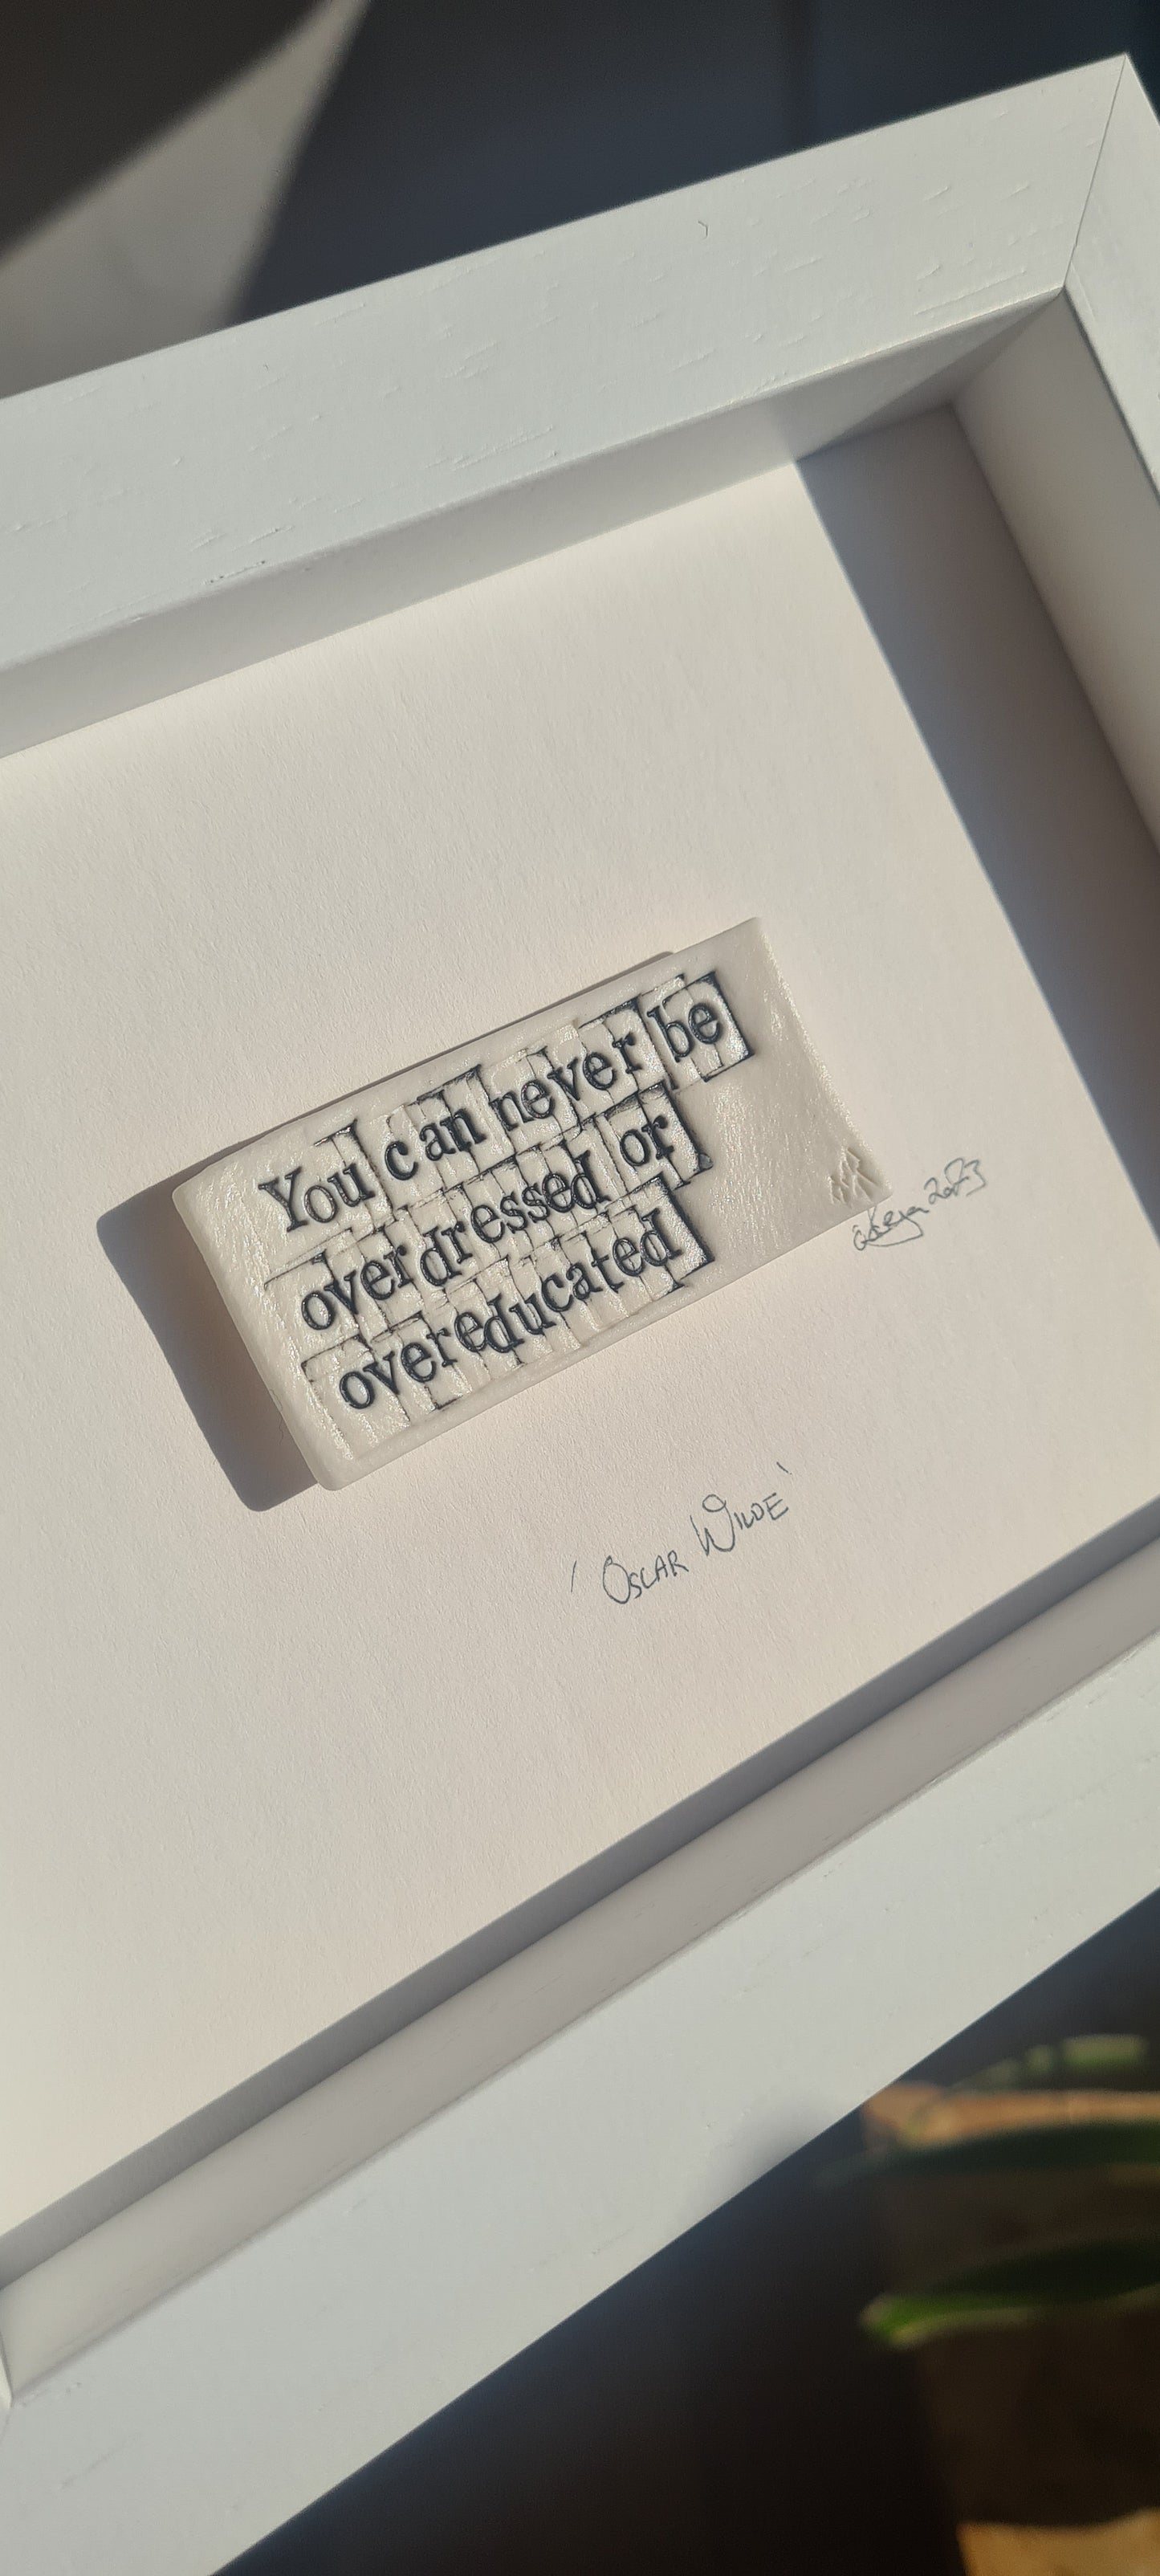 You can never be
overdressed or
overeducated
'Oscar Wilde'